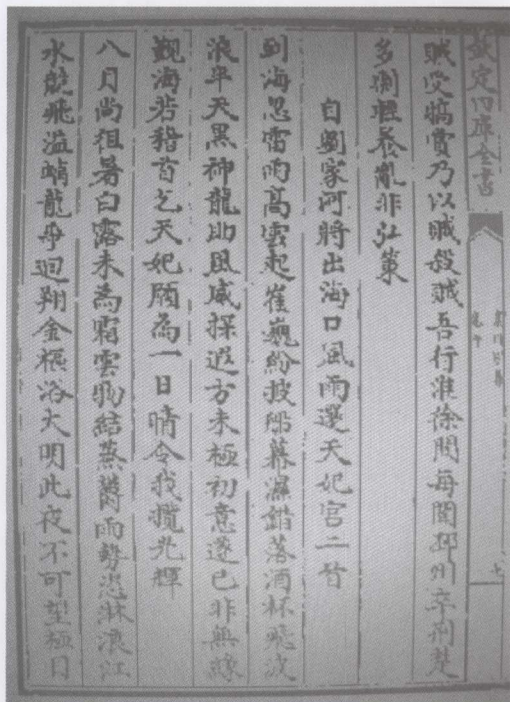 欽定四庫全書
賊受犒賞乃以賊殺賊吾行淮徐間每聞邳州卒荆楚
多剽輕養亂非弘策
自劉家河將出海口風雨還天妃宮二首
到海忽雷雨高雲起崔巍紛披船幕濕錯落酒杯飛波
浪平天黑神龍助風威探遐方未極初意遂已非無緣
觀海若稽首乞天妃願為一日晴令我攬光輝
八月尚徂暑白露未為霜雲物結蒸鬱雨勢恣淋浪江
水競飛溢螭龍爭迴翔金樞浴大明此夜不可望極目